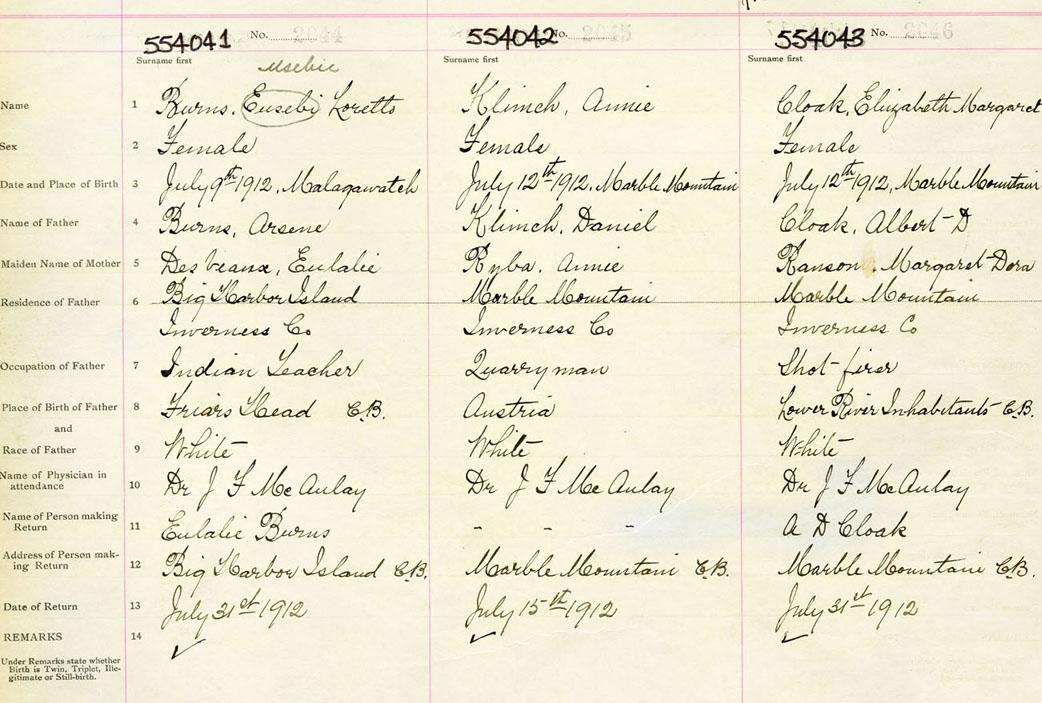 554041 No. 2044 554042 No. 2045 554043 No. 2046
Surname first Surname first Surname first
Usebie
Name 1 Burns, Eusebi Loretto Klimch, Annie Cloak, Elizabeth Margaret
Sex 2 Female Female Female
Date and Place of Birth 3 July 9th 1912, Malagawatch July 12th 1912, Marble Mountain July 12th 1912, Marble Mountain
Name of Father 4 Burns, Arsene Klimch, Daniel Cloak, Albert D
Maiden Name of Mother 5 Des Veaux, Eulalie Ryba, Annie Ransom, Margaret Dora
Residence of Father 6 Big Harbor Island Marble Mountain Marble Mountain
Inverness Co Inverness Co Inverness Co
Occupation of Father 7 Indian Teacher Quarryman Shot-firer
Place of Birth of Father 8 Friars Head C.B. Austria Lower River Inhabitants C.B.
and
Race of Father 9 White White White
Name of Physician in
attendance 10 Dr J F McAulay Dr J F McAulay Dr J F McAulay
Name of Person making
Return 11 Eulalie Burns - - - A D Cloak
Address of Person mak-
ing Return 12 Big Harbor Island C.B. Marble Mountain C.B. Marble Mountain C.B.
Date of Return 13 July 31st 1912 July 15th 1912 July 31st 1912
REMARKS 14 ✓ ✓ ✓
Under Remarks state whether
Birth is Twin, Triplet, Ille-
gitimate or Still-birth.